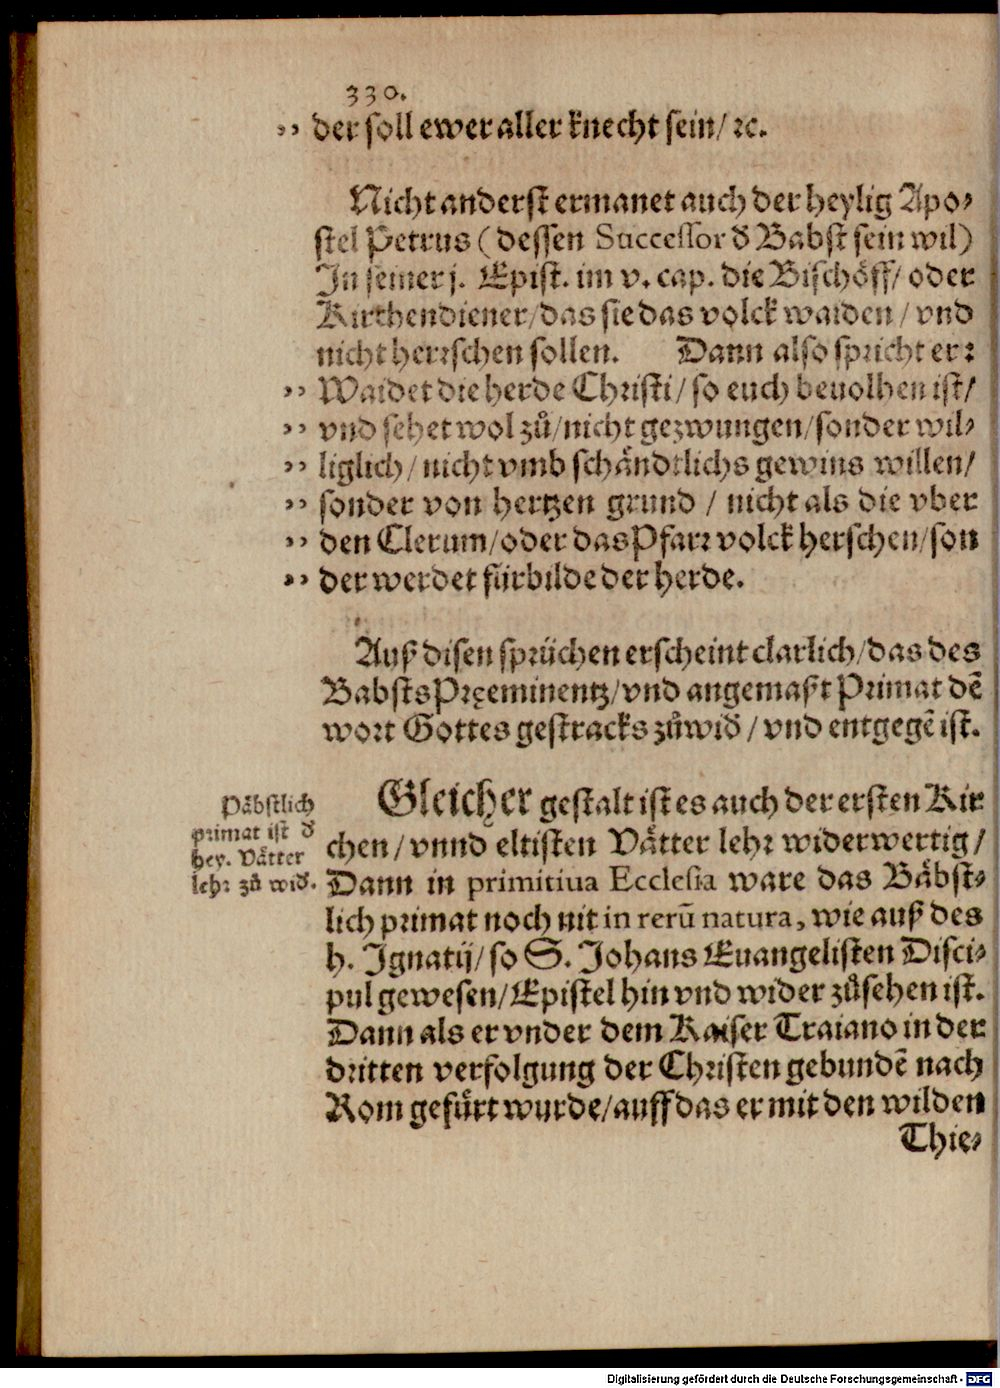 330.
„ der soll ewer aller knecht sein/ ꝛc.
Nicht anderst ermanet auch der heylig Apo⸗
stel Petrus (dessen Successor đ Babst sein wil)
In seiner j. Epist. im v. cap. die Bischöff/ oder
Kirchendiener/das sie das volck waiden / vnd
nicht herrschen sollen. Dann also spricht er:
„ Waidet die herde Christi/ so euch beuolhen ist/
„ vnd sehet wol zů/nicht gezwungen/sonder wil⸗
„ liglich/ nicht vmb schändtlichs gewins willen/
„ sonder von hertzen grund / nicht als die vber
„ den Clerum/oder das Pfarr volck herschen/son
„ der werdet fürbilde der herde.
Auß disen sprüchen erscheint clarlich/das des
Babsts Præeminentz/vnd angemaßt Primat dē
wort Gottes gestracks zůwiđ / vnd entgegē ist.
Gleicher gestalt ist es auch der ersten Kir
chen/ vnnd eltisten Vätter lehr widerwertig/
Dann in primitiua Ecclesia ware das Bäbst⸗
lich primat noch nit in rerū natura, wie auß des
h. Ignatij/ so S. Johans Euangelisten Disci⸗
pul gewesen/Epistel hin vnd wider zůsehen ist.
Dann als er vnder dem Kaiser Traiano in der
dritten verfolgung der Christen gebundē nach
Rom gefürt wurde/auff das er mit den wilden
Thie⸗
Päbstlich
primat ist đ
hey. Vätter
lehr zů wiđ.
Digitalisierung gefördert durch die Deutsche Forschungsgemeinschaft - DFG